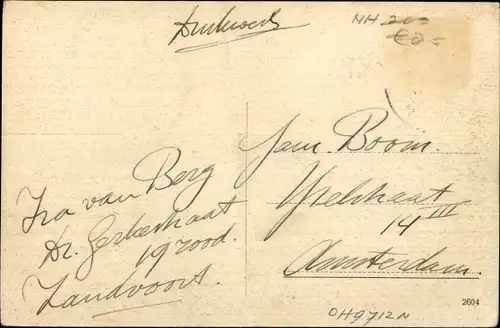 Drukwerk
NH 203
€8-
Ira van Berg
Dr. Gerkestraat
19 rood.
Zandvoort.
Fam. Boom.
IJselstraat
14 III
Amsterdam.
2604
OH9712N